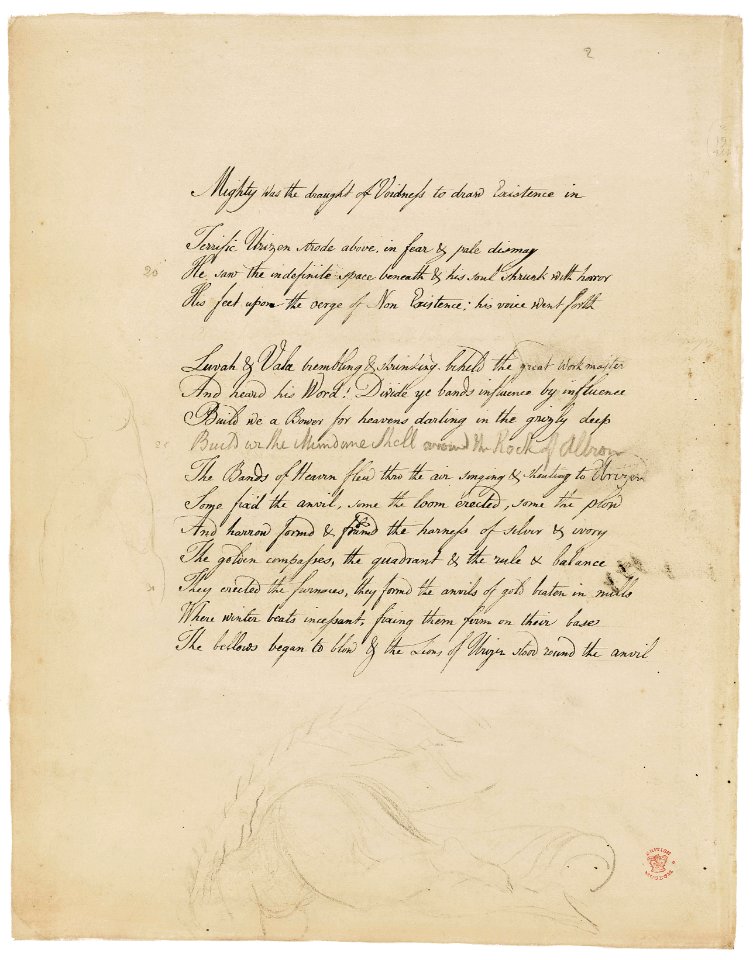 2
Mighty was the draught of Voidness to draw Existence in
Terrific Urizen strode above, in fear & pale dismay
20 He saw the indefinite space beneath & his soul shrunk with horror
His feet upon the verge of Non Existence; his voice went forth
Luvah & Vala trembling & shrinking, beheld the great Work master
And heard his Word! Divide ye bands influence by influence
Build we a Bower for heavens darling in the grizly deep
25 Build we the Mundane Shell around the Rock of Albion
The Bands of Heaven flew thro the air singing & shouting to Urizen
Some fix'd the anvil, some the loom erected, some the plow
And harrow formd & framd the harness of silver & ivory
The golden compasses, the quadrant & the rule & balance
They erected the furnaces, they formd the anvils of gold beaten in mills
Where winter beats incessant, fixing them firm on their base
The bellows began to blow & the Lions of Urizen stood round the anvil
BRITISH MUSEUM